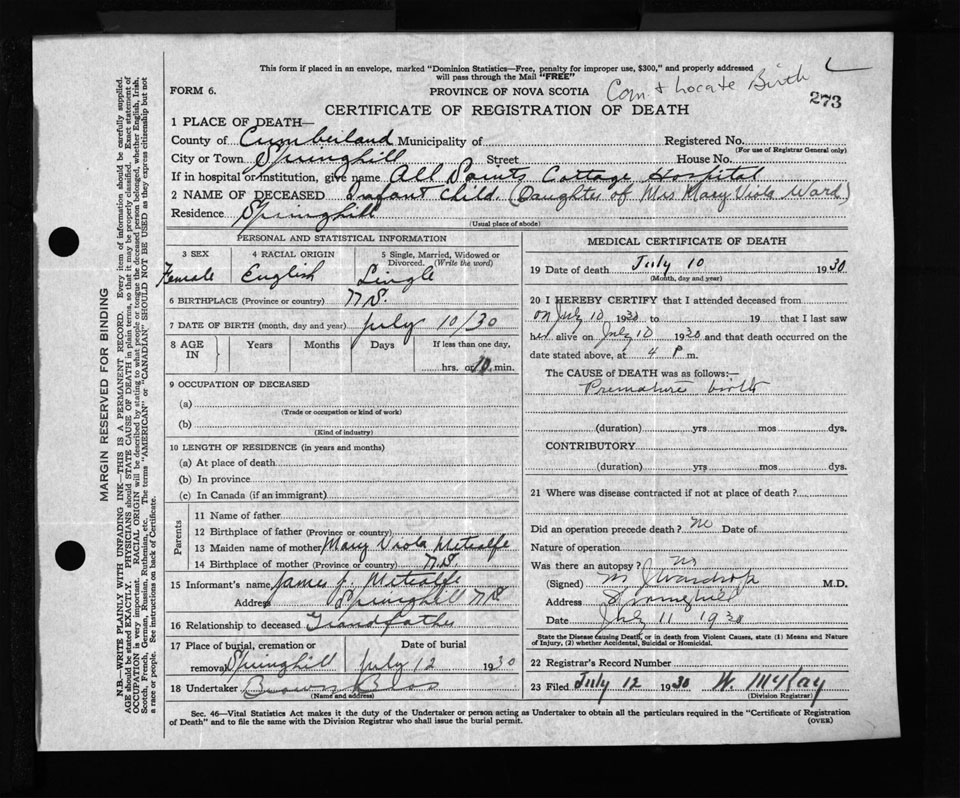 This form if placed in an envelope, marked "Dominion Statistics—Free, penalty for improper use, $300," and properly addressed
will pass through the Mail "FREE"
FORM 6.
PROVINCE OF NOVA SCOTIA
Com & Locate Birth
273
CERTIFICATE OF REGISTRATION OF DEATH
1 PLACE OF DEATH—
County of Cumberland Municipality of
Registered No.
(For use of Registrar General only)
City or Town Springhill Street House No.
If in hospital or institution, give name All Saints Cottage Hospital
2 NAME OF DECEASED Infant Child. (Daughter of Mrs Mary Viola Ward)
Residence Springhill
(Usual place of abode)
PERSONAL AND STATISTICAL INFORMATION
3 SEX
Female
4 RACIAL ORIGIN
English
5 Single, Married, Widowed or
Divorced. (Write the word)
Single
6 BIRTHPLACE (Province or country) N.S.
7 DATE OF BIRTH (month, day and year) July 10/30
8 AGE IN Years Months Days If less than one day,
hrs. or 10 min.
9 OCCUPATION OF DECEASED
(a)
(Trade or occupation or kind of work)
(b)
(Kind of industry)
10 LENGTH OF RESIDENCE (in years and months)
(a) At place of death
(b) In province
(c) In Canada (if an immigrant)
Parents
11 Name of father
12 Birthplace of father (Province or country)
13 Maiden name of mother Mary Viola Metcalfe
14 Birthplace of mother (Province or country) N.S.
15 Informant's name James J. Metcalfe
Address Springhill N.S.
16 Relationship to deceased Grandfather
17 Place of burial, cremation or
removal Springhill
Date of burial
July 12 1930
18 Undertaker Brown Bros
(Name and address)
MEDICAL CERTIFICATE OF DEATH
19 Date of death July 10 1930
(Month, day and year)
20 I HEREBY CERTIFY that I attended deceased from
on July 10 1930 to 19 that I last saw
her alive on July 10 1930 and that death occurred on the
date stated above, at 4 P m.
The CAUSE of DEATH was as follows:—
Premature birth
(duration) yrs mos dys.
CONTRIBUTORY
(duration) yrs mos dys.
21 Where was disease contracted if not at place of death?
Did an operation precede death? No Date of
Nature of operation
Was there an autopsy? No
(Signed) M J Wardrop M.D.
Address Springhill
Date July 11 1930
State the Disease causing Death, or in death from Violent Causes, state (1) Means and Nature
of Injury, (2) whether Accidental, Suicidal or Homicidal.
22 Registrar's Record Number
23 Filed July 12 1930 W. McKay
(Division Registrar)
Sec. 46—Vital Statistics Act makes it the duty of the Undertaker or person acting as Undertaker to obtain all the particulars required in the "Certificate of Registration
of Death" and to file the same with the Division Registrar who shall issue the burial permit.
(OVER)
MARGIN RESERVED FOR BINDING
N.B.—WRITE PLAINLY WITH UNFADING INK—THIS IS A PERMANENT RECORD. Every item of information should be carefully supplied.
AGE should be stated EXACTLY. PHYSICIANS should STATE CAUSE OF DEATH in plain terms, so that it may be properly classified. Exact statement of
OCCUPATION is very important. RACIAL ORIGIN will be described by stating to what people or tongue the deceased person belonged, whether English, Irish,
Scotch, French, German, Russian, Ruthenian, etc. The terms "AMERICAN" or "CANADIAN" SHOULD NOT BE USED as they express citizenship but not
a race or people. See instructions on back of Certificate.